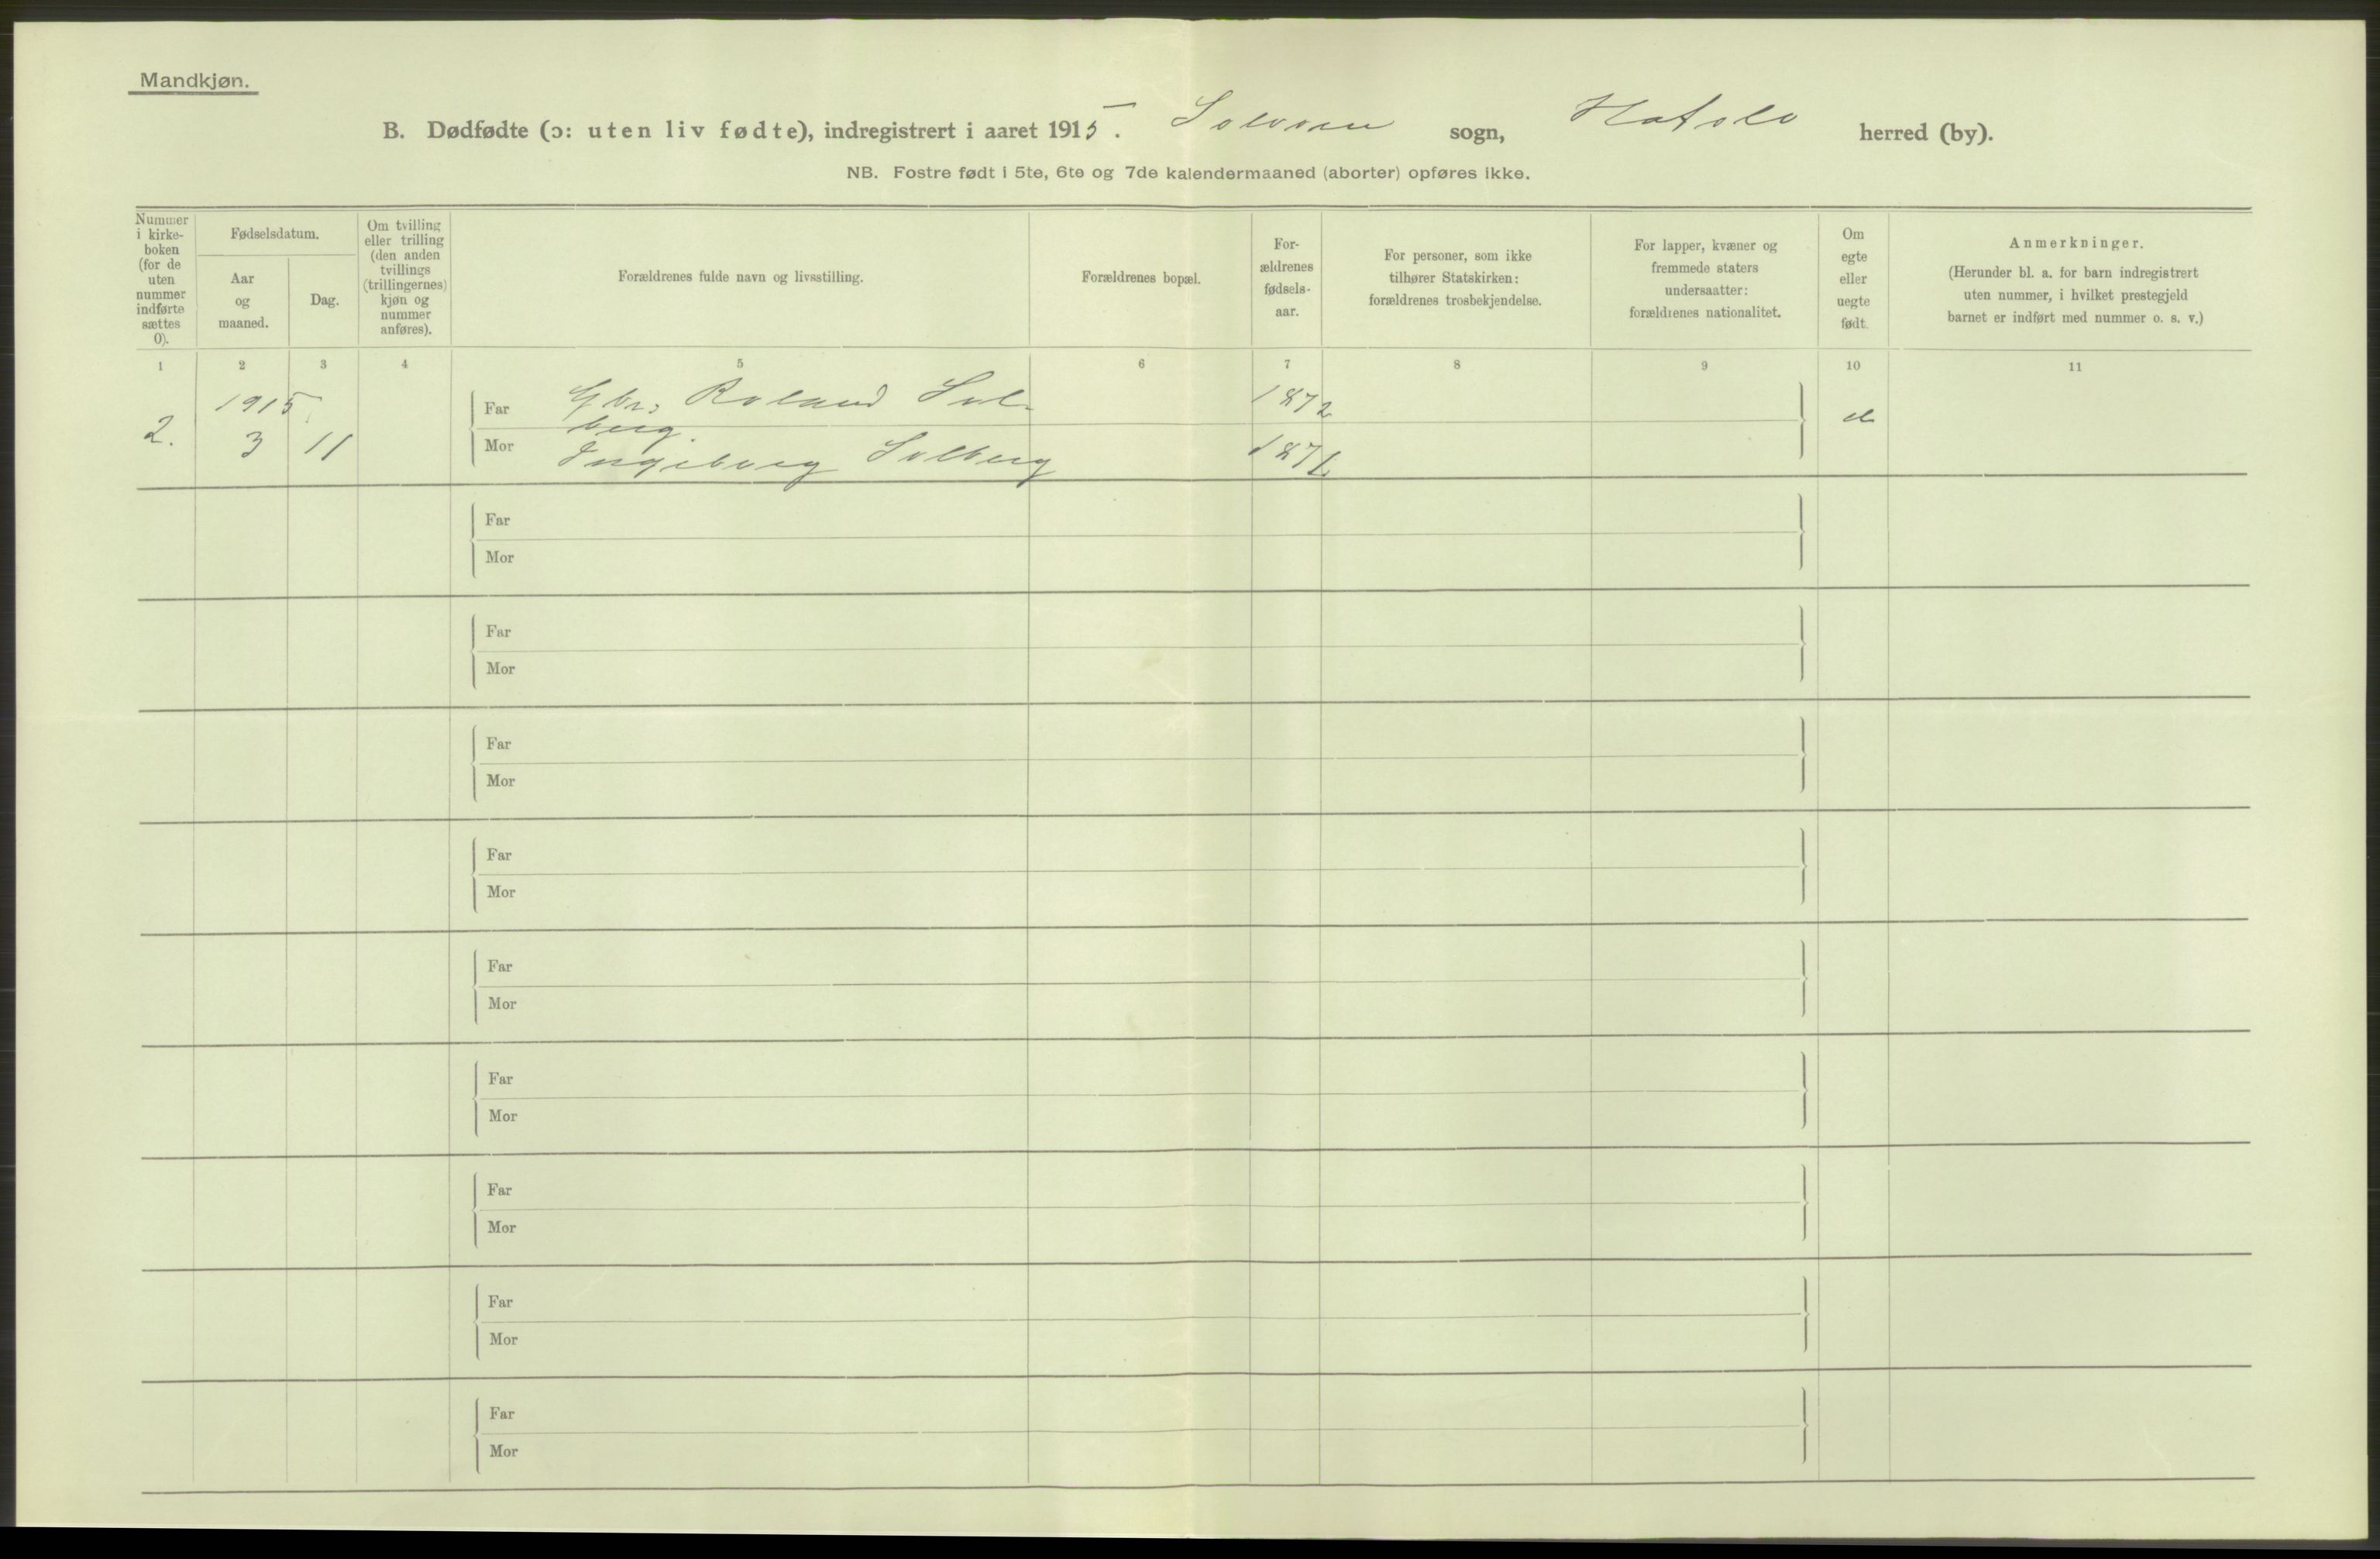 Mandkjøn.
B. Dødfødte (ɔ: uten liv fødte), indregistrert i aaret 1915. Solvorn sogn, Hafslo herred (by).
NB. Fostre født i 5te, 6te og 7de kalendermaaned (aborter) opføres ikke.
Nummer
i kirke-
boken
(for de
uten
nummer
indførte
sættes
0).
Fødselsdatum.
Aar
og
maaned.
Dag.
Om tvilling
eller trilling
(den anden
tvillings
(trillingernes)
kjøn og
nummer
anføres).
Forældrenes fulde navn og livsstilling.
Forældrenes bopæl.
For-
ældrenes
fødsels-
aar.
For personer, som ikke
tilhører Statskirken:
forældrenes trosbekjendelse.
For lapper, kvæner og
fremmede staters
undersaatter:
forældrenes nationalitet.
Om
egte
eller
uegte
født.
Anmerkninger.
(Herunder bl. a. for barn indregistrert
uten nummer, i hvilket prestegjeld
barnet er indført med nummer o. s. v.)
1 2 3 4 5 6 7 8 9 10 11
1915
2. 3 11
Far Gbr. Roland Sol-
berg. 1872
e
Mor Ingeborg Solberg
Far
Mor
Far
Mor
Far
Mor
Far
Mor
Far
Mor
Far
Mor
Far
Mor
Far
Mor
Far
Mor